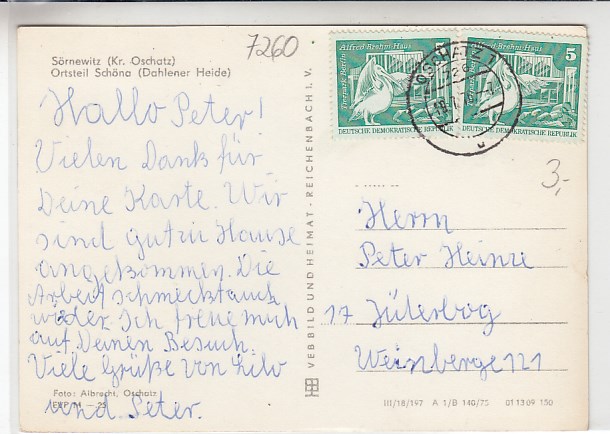 7260
Sörnewitz (Kr. Oschatz)
Ortsteil Schöna (Dahlener Heide)
Hallo Peter!
Vielen Dank für
Deine Karte. Wir
sind gut zu Hause
angekommen. Die
Arbeit schmeckt auch
wieder. Ich freue mich
auf Deinen Besuch.
Viele Grüße von Lilo
und Peter.
Foto: Albrecht, Oschatz
VEB BILD UND HEIMAT · REICHENBACH I. V.
Alfred-Brehm-Haus
Tierpark Berlin
5
DEUTSCHE DEMOKRATISCHE REPUBLIK
Alfred-Brehm-Haus
5
DEUTSCHE DEMOKRATISCHE REPUBLIK
OSCHATZ 1
3,-
Herrn
Peter Heinze
17 Jüterbog
Weinberge 121
III/18/197 A 1/B 140/75 01 13 09 150